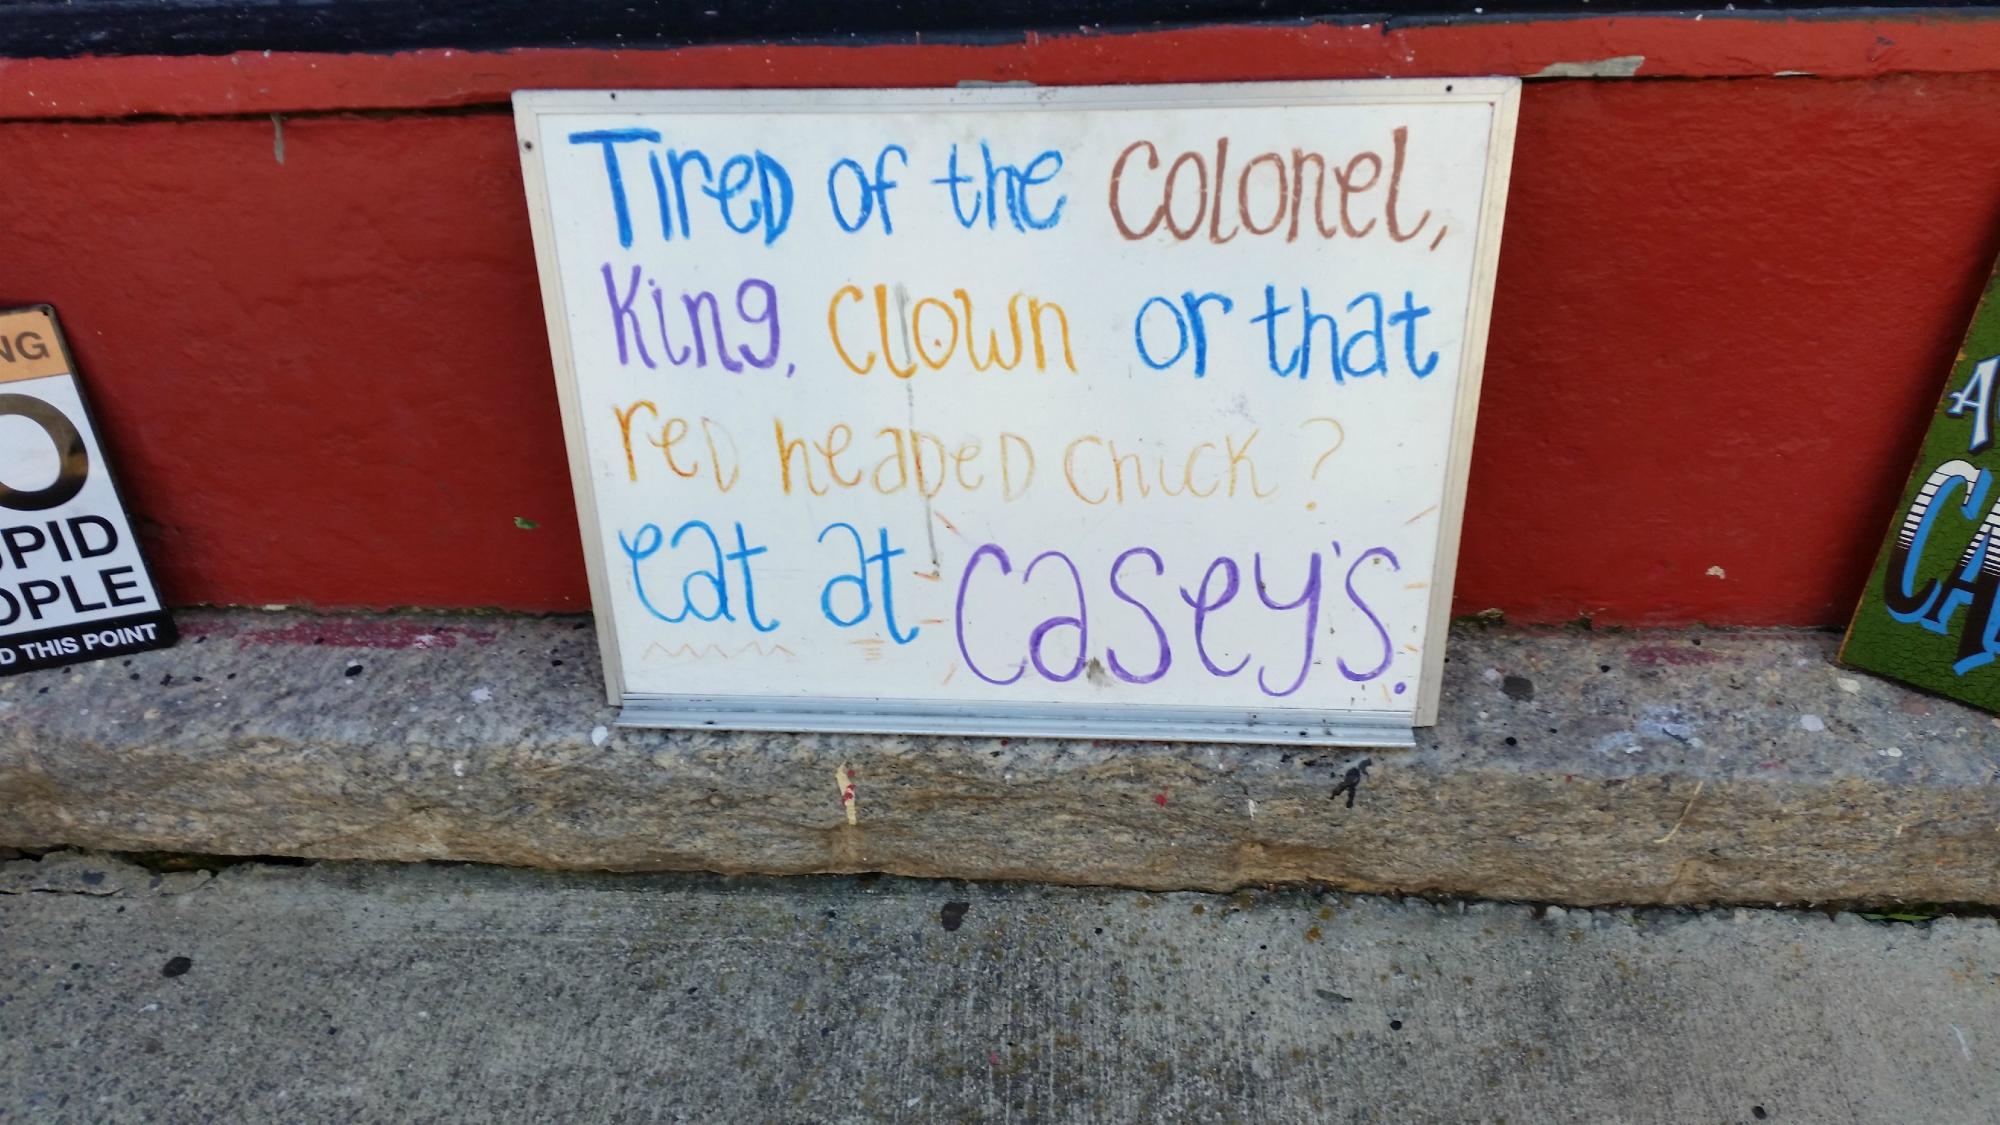 Tired of the Colonel,
King, Clown or that
red headed chick?
eat at Casey's.
NG
O
UPID
OPLE
D THIS POINT
A
CA